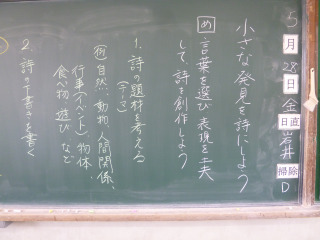 5月28日金 日直 岩井 掃除 D
小さな発見を詩にしよう
め 言葉を選び表現を工夫
して、詩を創作しよう
1. 詩の題材を考える
(テーマ)
例 自然、動物、人間関係、
行事(イベント)、物体、
食べ物、遊び など
2. 詩の下書きを書く